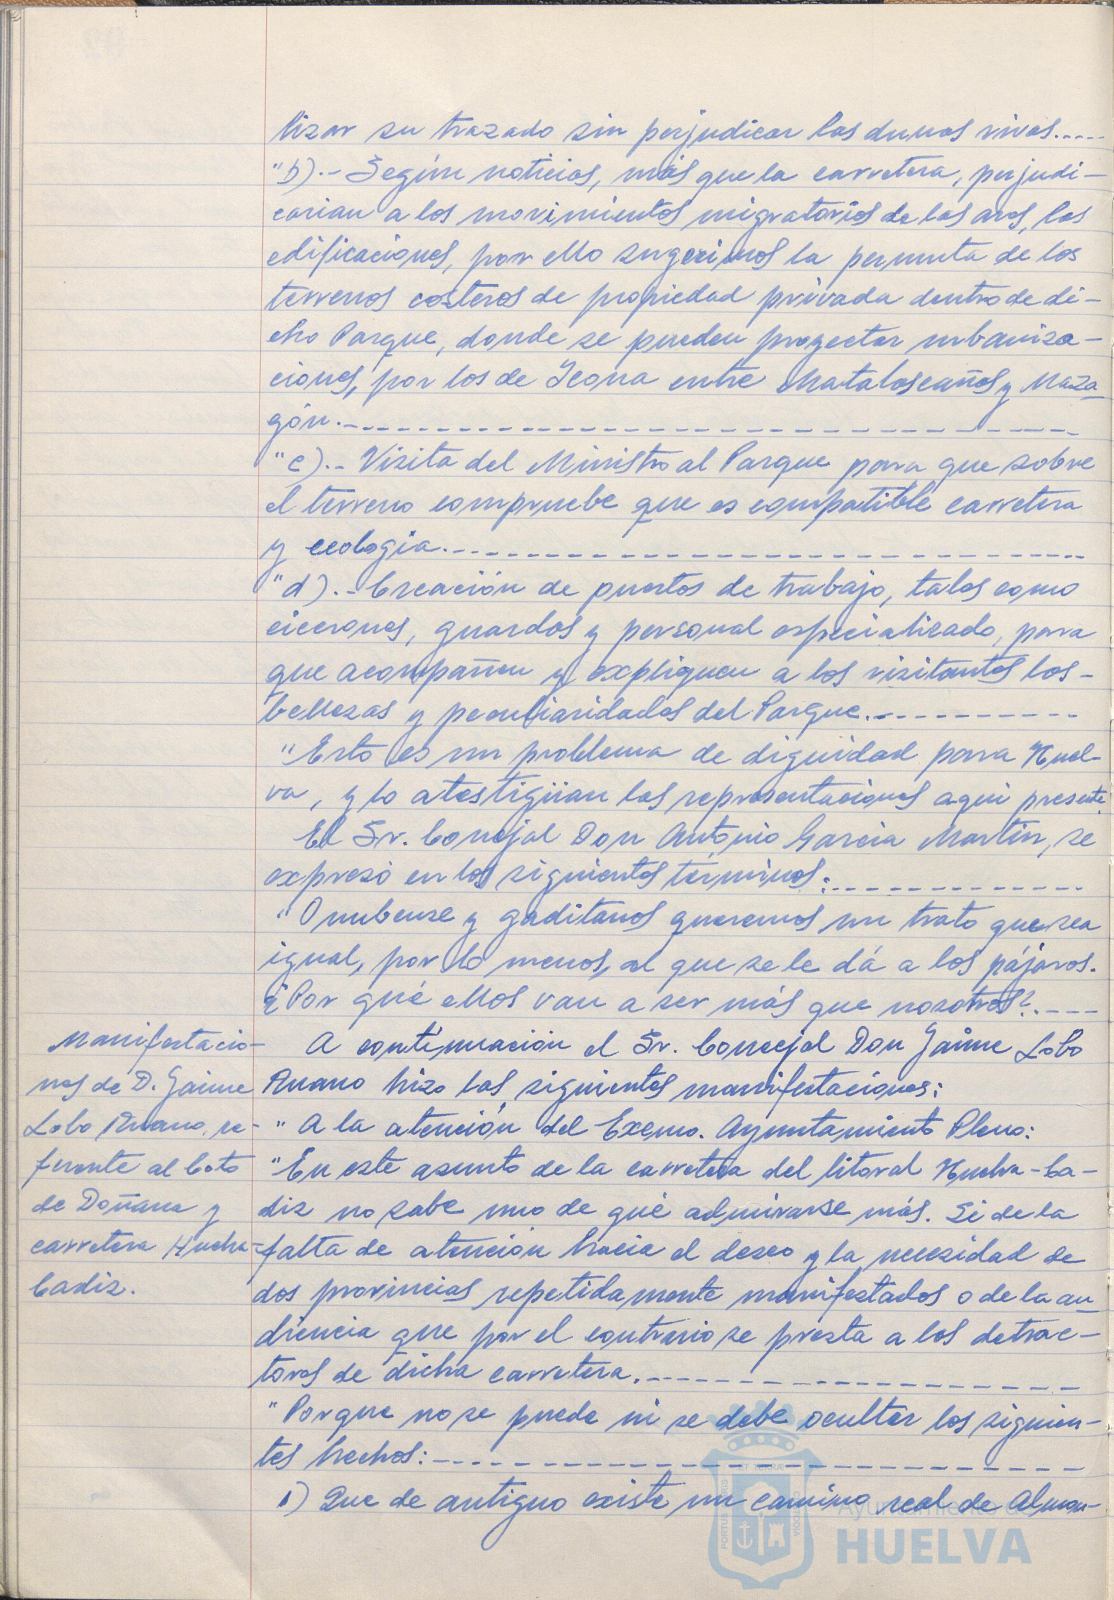 lizar su trazado sin perjudicar las dunas vivas.....
"b).- Según noticias, más que la carretera, perjudi-
carian a los movimientos migratorios de las aves, las
edificaciones, por ello sugerimos la permuta de los
terrenos costeros de propiedad privada dentro de di-
cho Parque, donde se pueden proyectar urbaniza-
ciones, por los de Icona entre Matalascañas y Maza-
gón.-
"c).- Visita del Ministro al Parque para que sobre
el terreno compruebe que es compatible carretera
y ecologia.-
"d).- Creación de puestos de trabajo, tales como
cicerones, guardas y personal especializado, para
que acompañen y expliquen a los visitantes las-
bellezas y peculiaridades del Parque.-
"Esto es un problema de dignidad para Huel-
va, y lo atestigüan las representaciones aqui presente
El Sr. Concejal Don Antonio Garcia Martin, se
expresó en los siguientes términos:-
"Onubense y gaditanos queremos un trato que sea
igual, por lo menos, al que se le dá a los pájaros.
¿Por qué ellos van a ser más que nosotros?.-
Manifestacio-
nes de D. Jaime
Lobo Ruano, re-
ferente al Coto
de Doñana y
carretera Huelva-
Cadiz.
A continuación el Sr. Concejal Don Jaime Lobo
Ruano hizo las siguientes manifestaciones:
"A la atención del Excmo. Ayuntamiento Pleno:
"En este asunto de la carretera del litoral Huelva-Ca-
diz no sabe uno de qué admirarse más. Si de la
falta de atención hacia el deseo y la necesidad de
dos provincias repetidamente manifestados o de la au-
diencia que por el contrario se presta a los detrac-
tores de dicha carretera.-
"Porque no se puede ni se debe ocultar los siguien-
tes hechos:-
1) Que de antiguo existe un camino real de Almon-
Ayuntamiento de
HUELVA